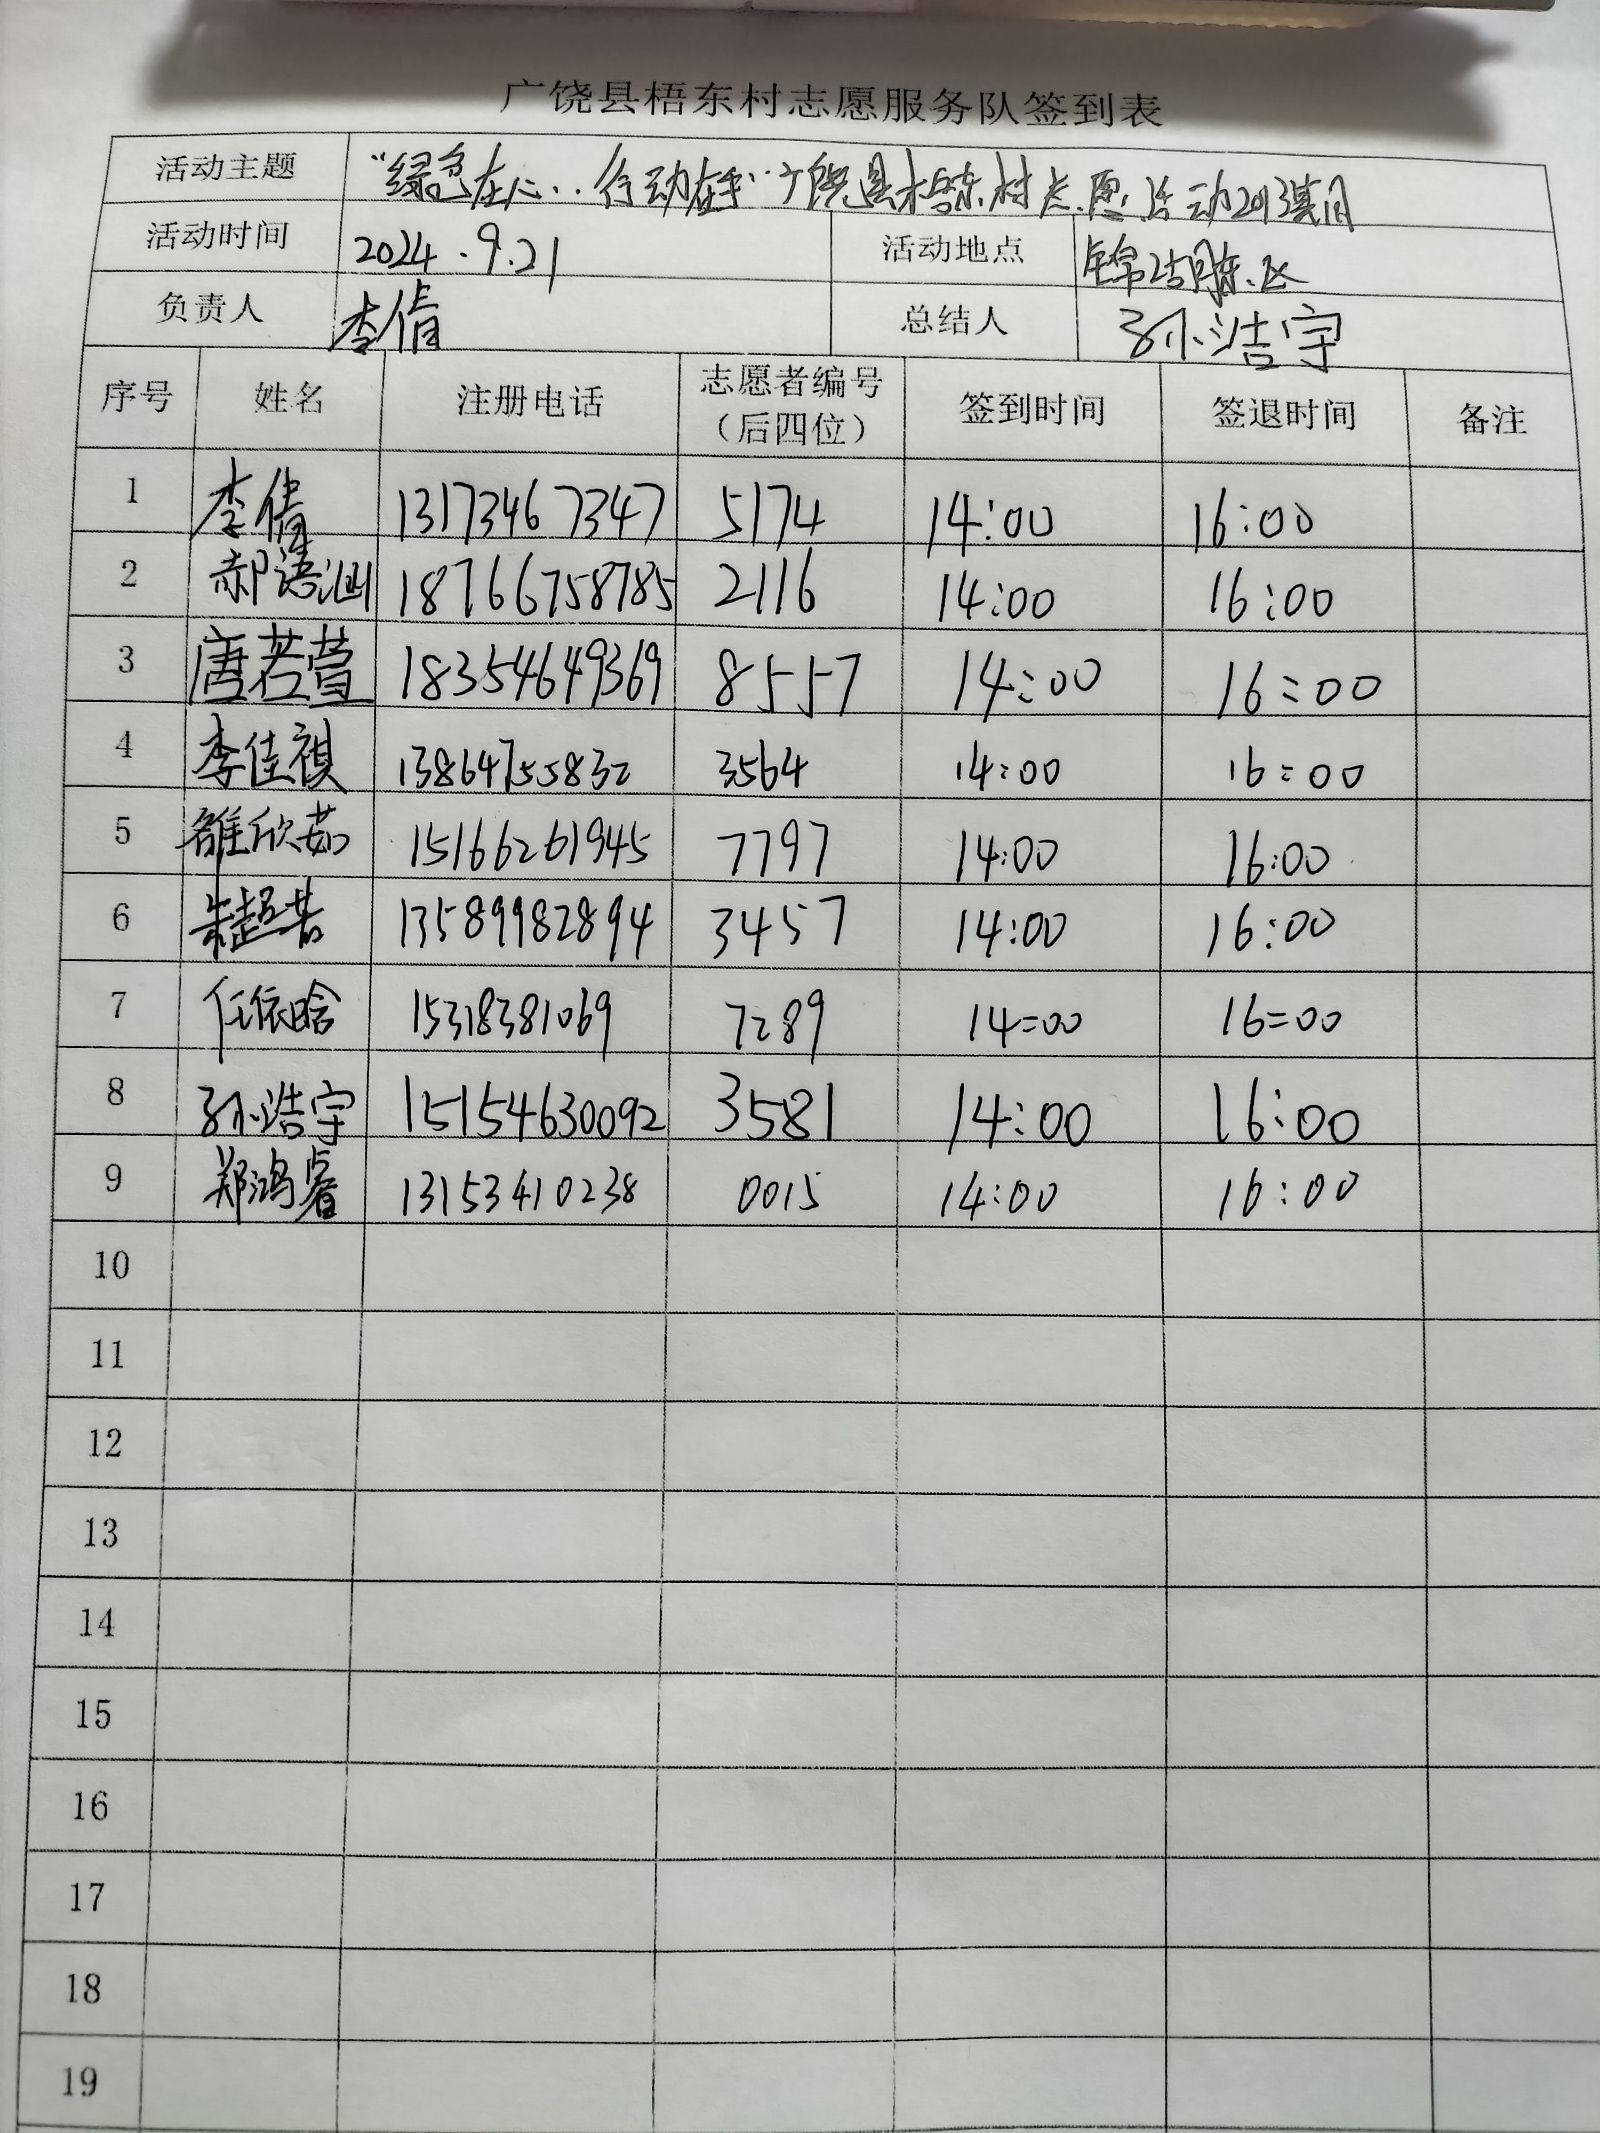 广饶县梧东村志愿服务队签到表
活动主题 “绿色在心..行动在手”广饶县梧东村志愿活动2013期
活动时间 2024.9.21 活动地点 锦湖东区
负责人 李倩 总结人 孙浩宇
序号 姓名 注册电话 志愿者编号（后四位） 签到时间 签退时间 备注
1 李倩 13173467347 5174 14:00 16:00
2 郝语涵 18766758785 2116 14:00 16:00
3 唐若萱 18354649369 8557 14:00 16:00
4 李佳祺 13864755832 3564 14:00 16:00
5 雒欣茹 15166261945 7797 14:00 16:00
6 朱超若 13589982894 3457 14:00 16:00
7 任依晗 15318381069 7289 14=00 16=00
8 孙浩宇 15154630092 3581 14:00 16:00
9 郑鸿睿 13153410238 0015 14:00 16:00
10
11
12
13
14
15
16
17
18
19